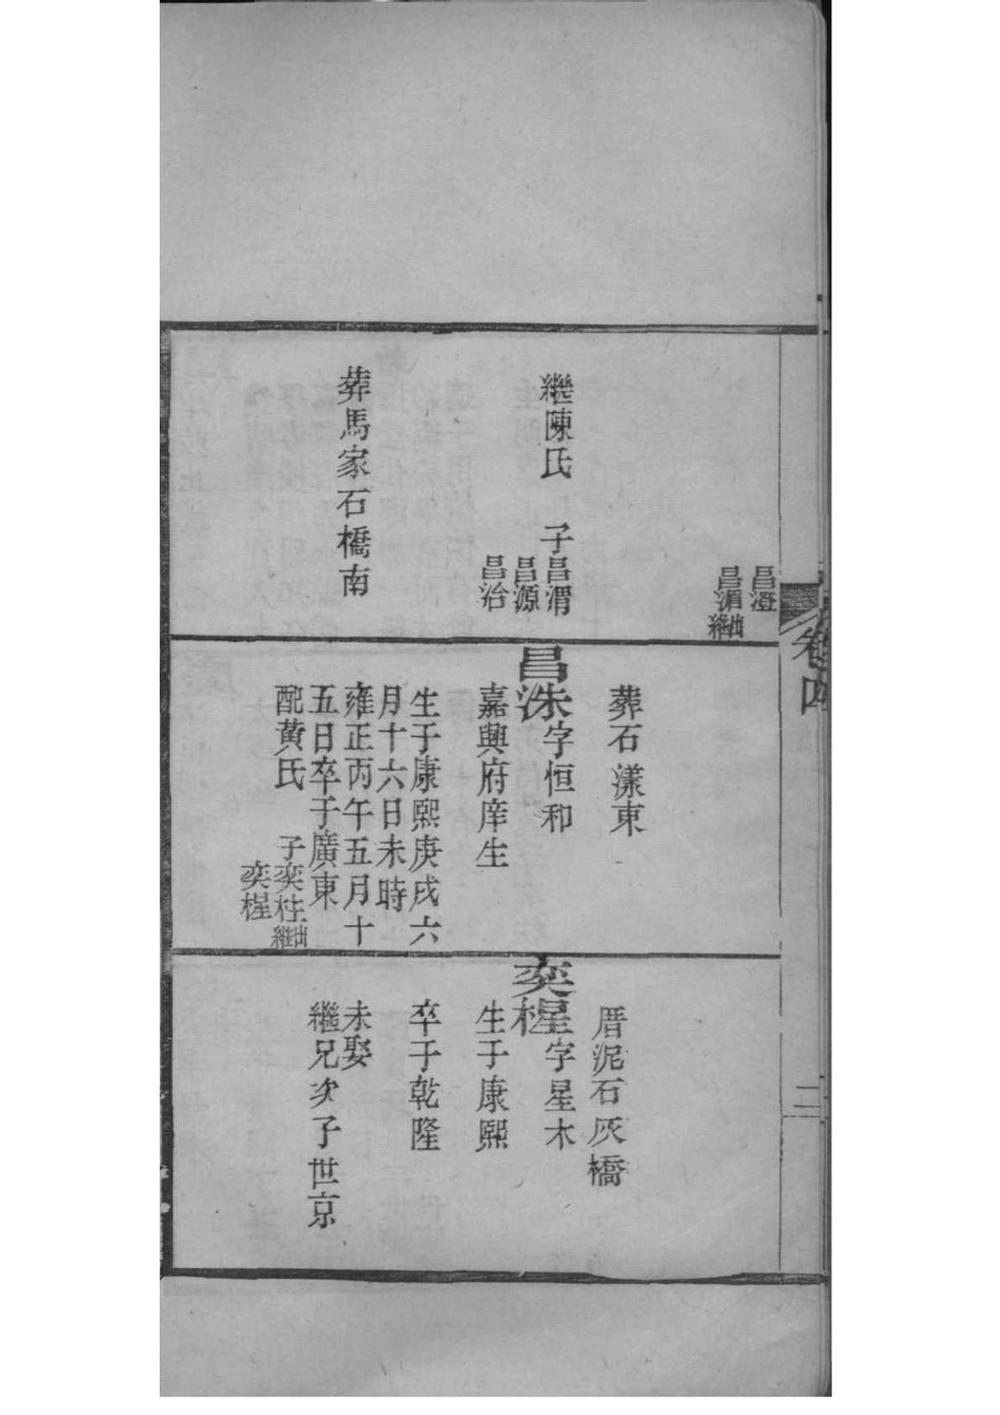 卷四
二
昌澄
昌湄出繼
繼陳氏 子昌渭
昌源
昌治
葬馬家石橋南
葬石漾東
昌洙字恒和
嘉興府庠生
生于康熙庚戌六
月十六日未時
雍正丙午五月十
五日卒于廣東
配黃氏 子奕柱出繼
奕樫
厝泥石灰橋
奕樫字星木
生于康熙
卒于乾隆
未娶
繼兄次子世京